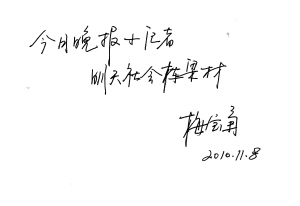 今日晚报小记者
明天社会栋梁材
梅宝勇
2010.11.8